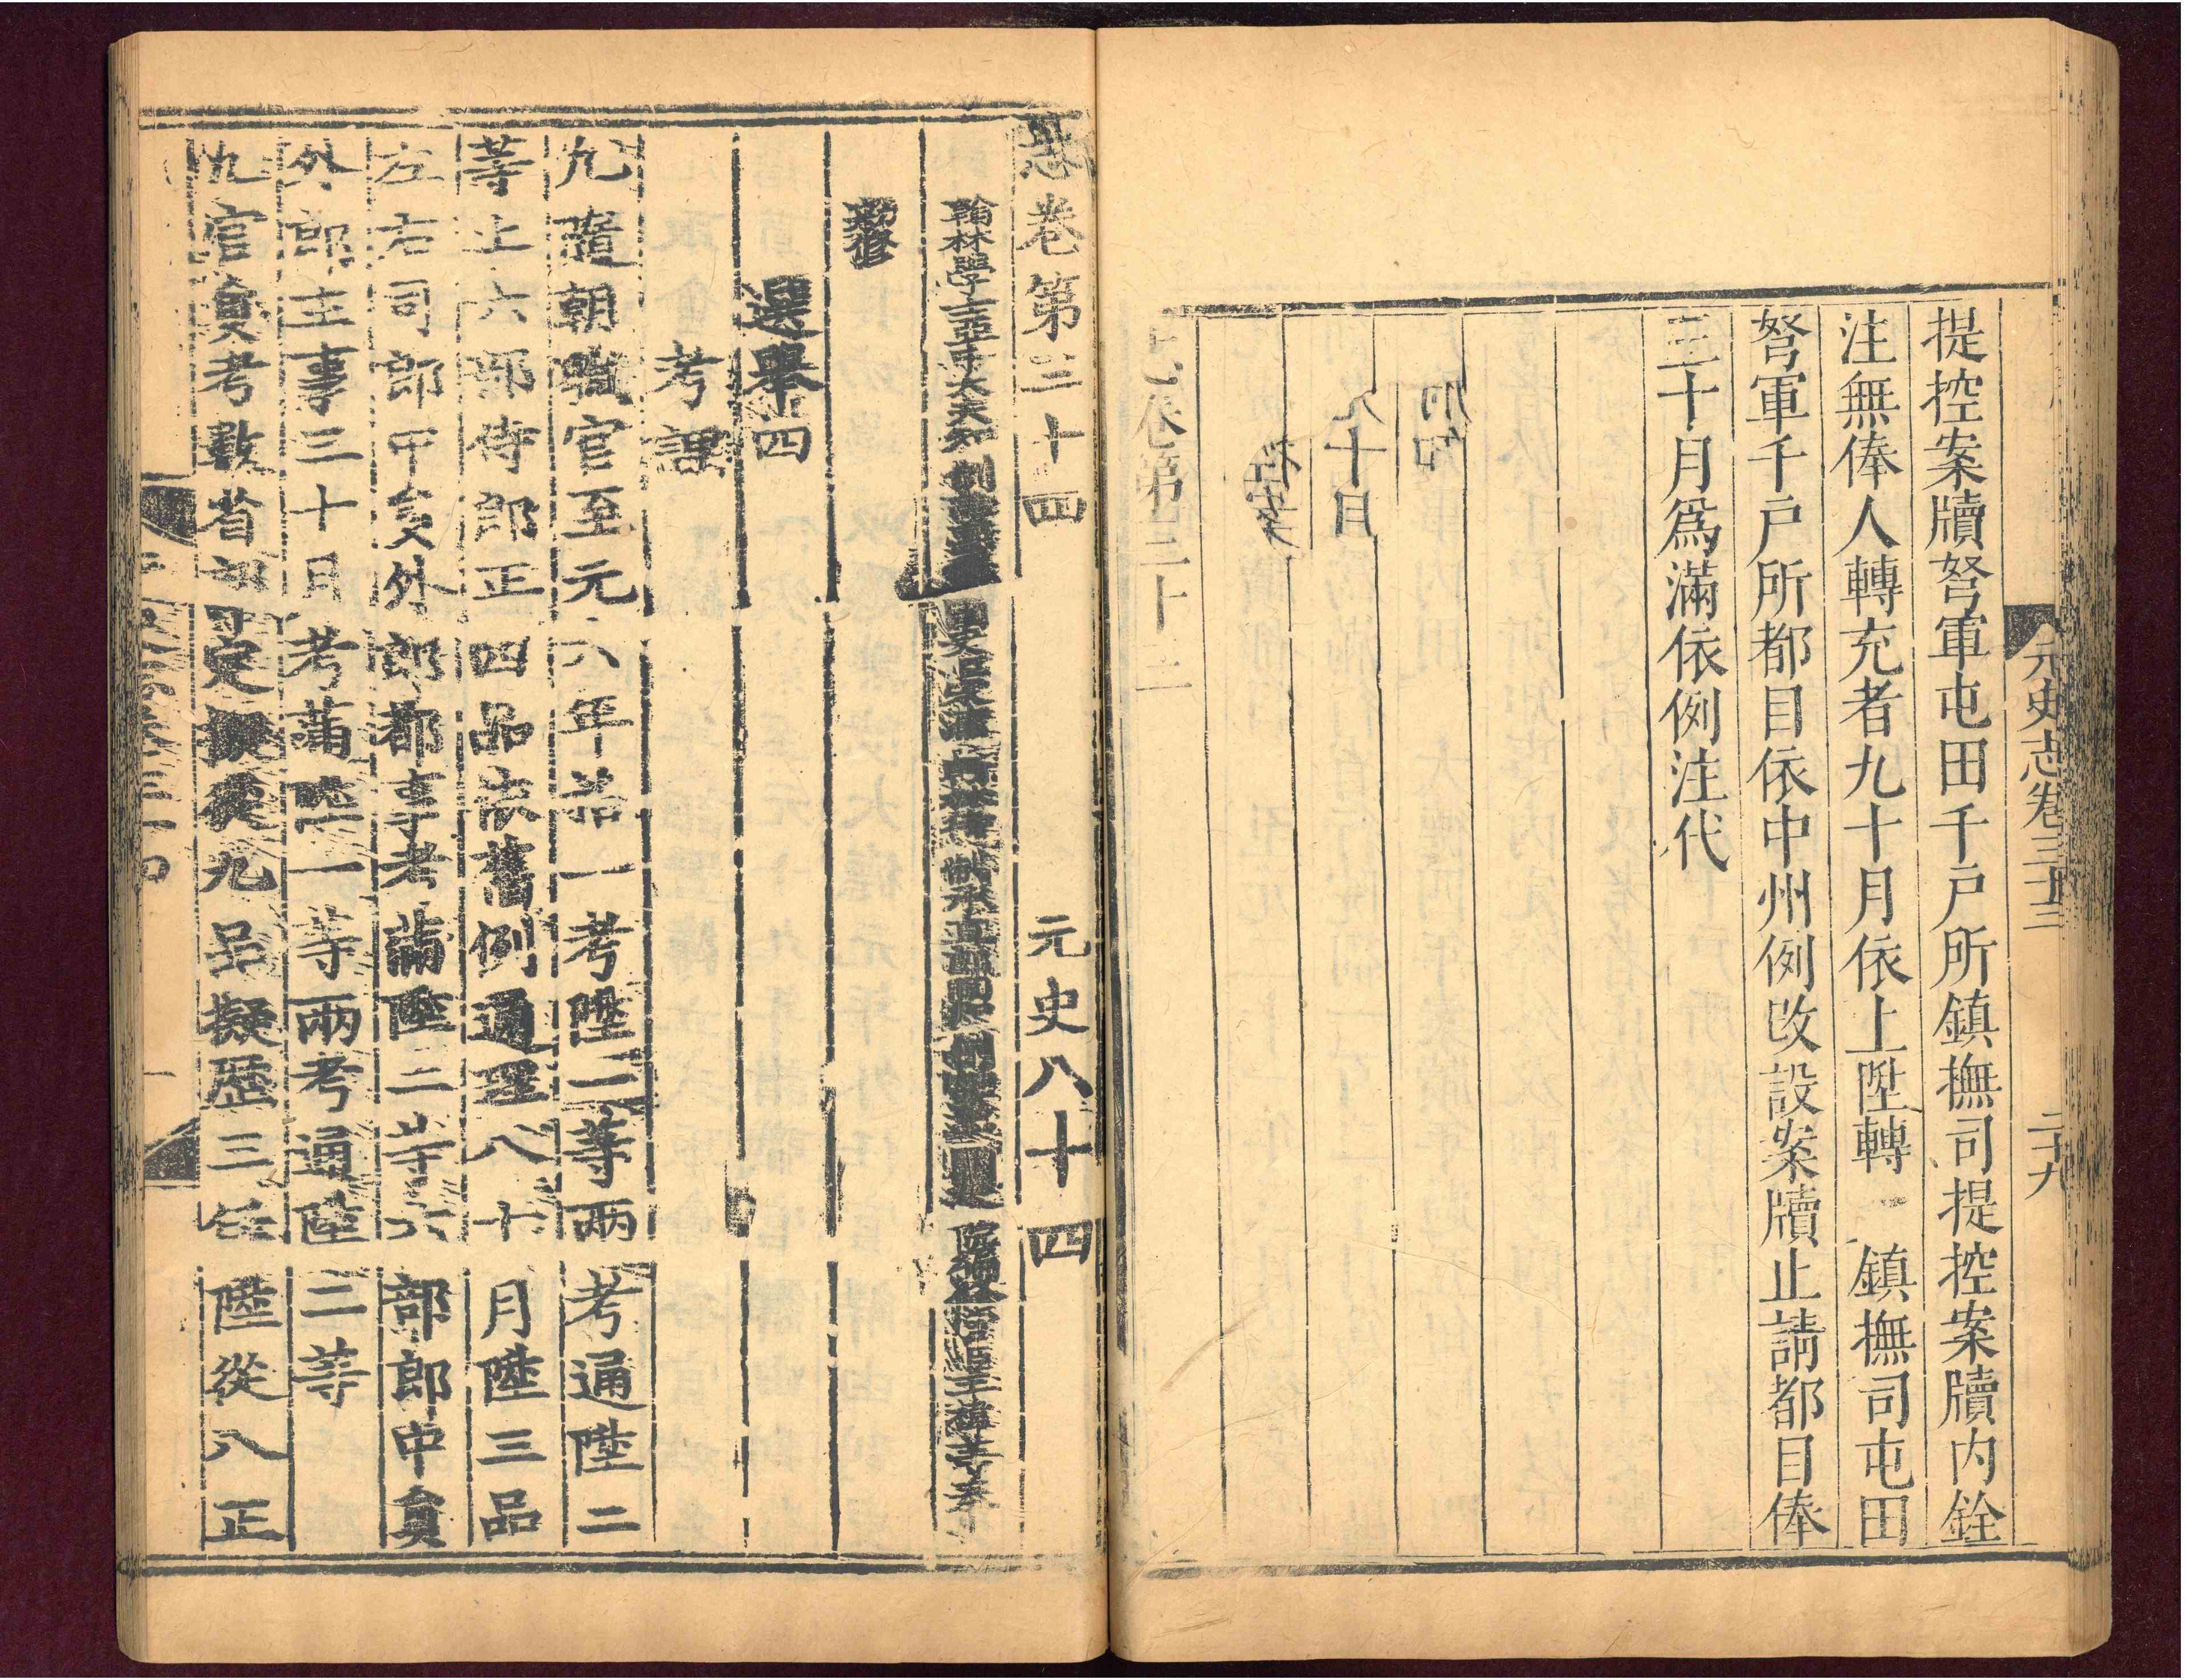 元史志卷三十三
二十九
提控案牘弩軍屯田千戶所鎮撫司提控案牘内銓
注無俸人轉充者九十月依上陞轉 鎮撫司屯田
弩軍千戶所都目依中州例改設案牘止請都目俸
三十月爲滿依例注代
九十月
卷第三十三
志卷第三十四 元史八十四
翰林學士亞中大夫知制誥
勑修
選舉四
考課
凡隨朝職官至元六年格一考陞二等兩考通陞二
等止六部侍郎正四品依舊例通理八十月陞三品
左右司郎中員外郎都事考滿陞二等六部郎中員
外郎主事三十月考滿陞一等兩考通陞二等
凡官員考數省部定擬從九品擬歷三任陞從八正